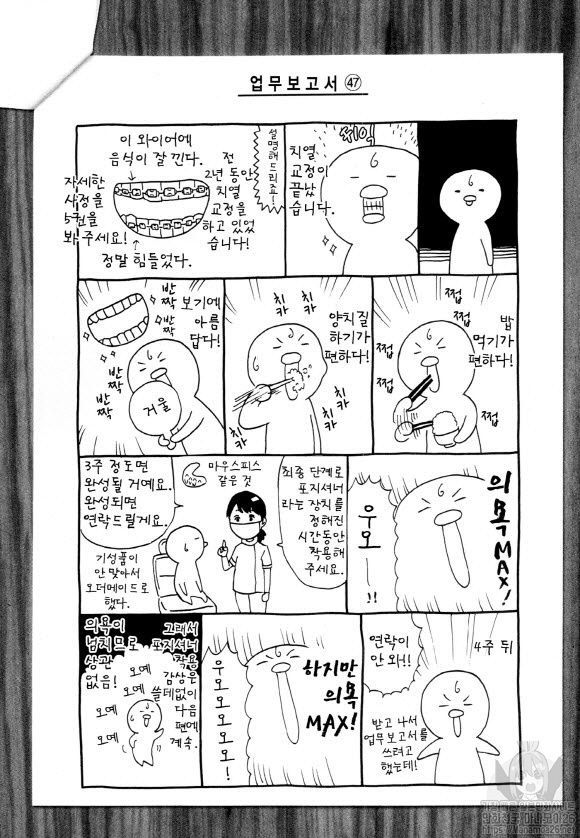 업무보고서 ㊼
치열
교정이
끝났
습니다.
씨익
설명해드리죠!
전
2년 동안
치열
교정을
하고 있었
습니다!
이 와이어에
음식이 잘 낀다.
자세한
사정을
5권을
봐 주세요!
정말 힘들었다.
밥
먹기가
편하다!
쩝
쩝
쩝
쩝
양치질
하기가
편하다!
치카
치카
치카
치카
보기에
아름
답다!
반짝
반짝
반짝
반짝
거울
의욕
MAX!
우오ー!!
최종 단계로
포지셔너
라는 장치를
정해진
시간동안
착용해
주세요.
마우스피스
같은 것
3주 정도면
완성될 거예요.
완성되면
연락드릴게요.
기성품이
안 맞아서
오더메이드로
했다.
4주 뒤
연락이
안 와!!
받고 나서
업무보고서를
쓰려고
했는데!
하지만
의욕
MAX!
우오오오오오!
그래서
포지셔너
착용
감상은
쓸데없이
다음
편에
계속.
의욕이
넘치므로
상관
없음!
오예
오예
오예
오예